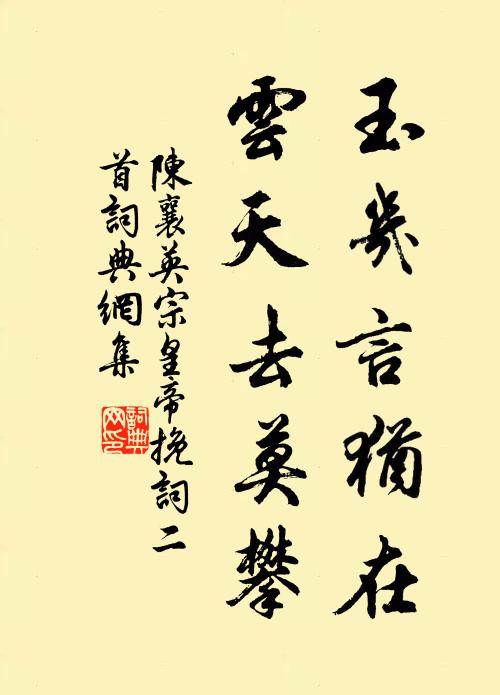 玉几言猶在
雲天去莫攀
陳襄英宗皇帝挽詞二
首詞典網集
詞典網印